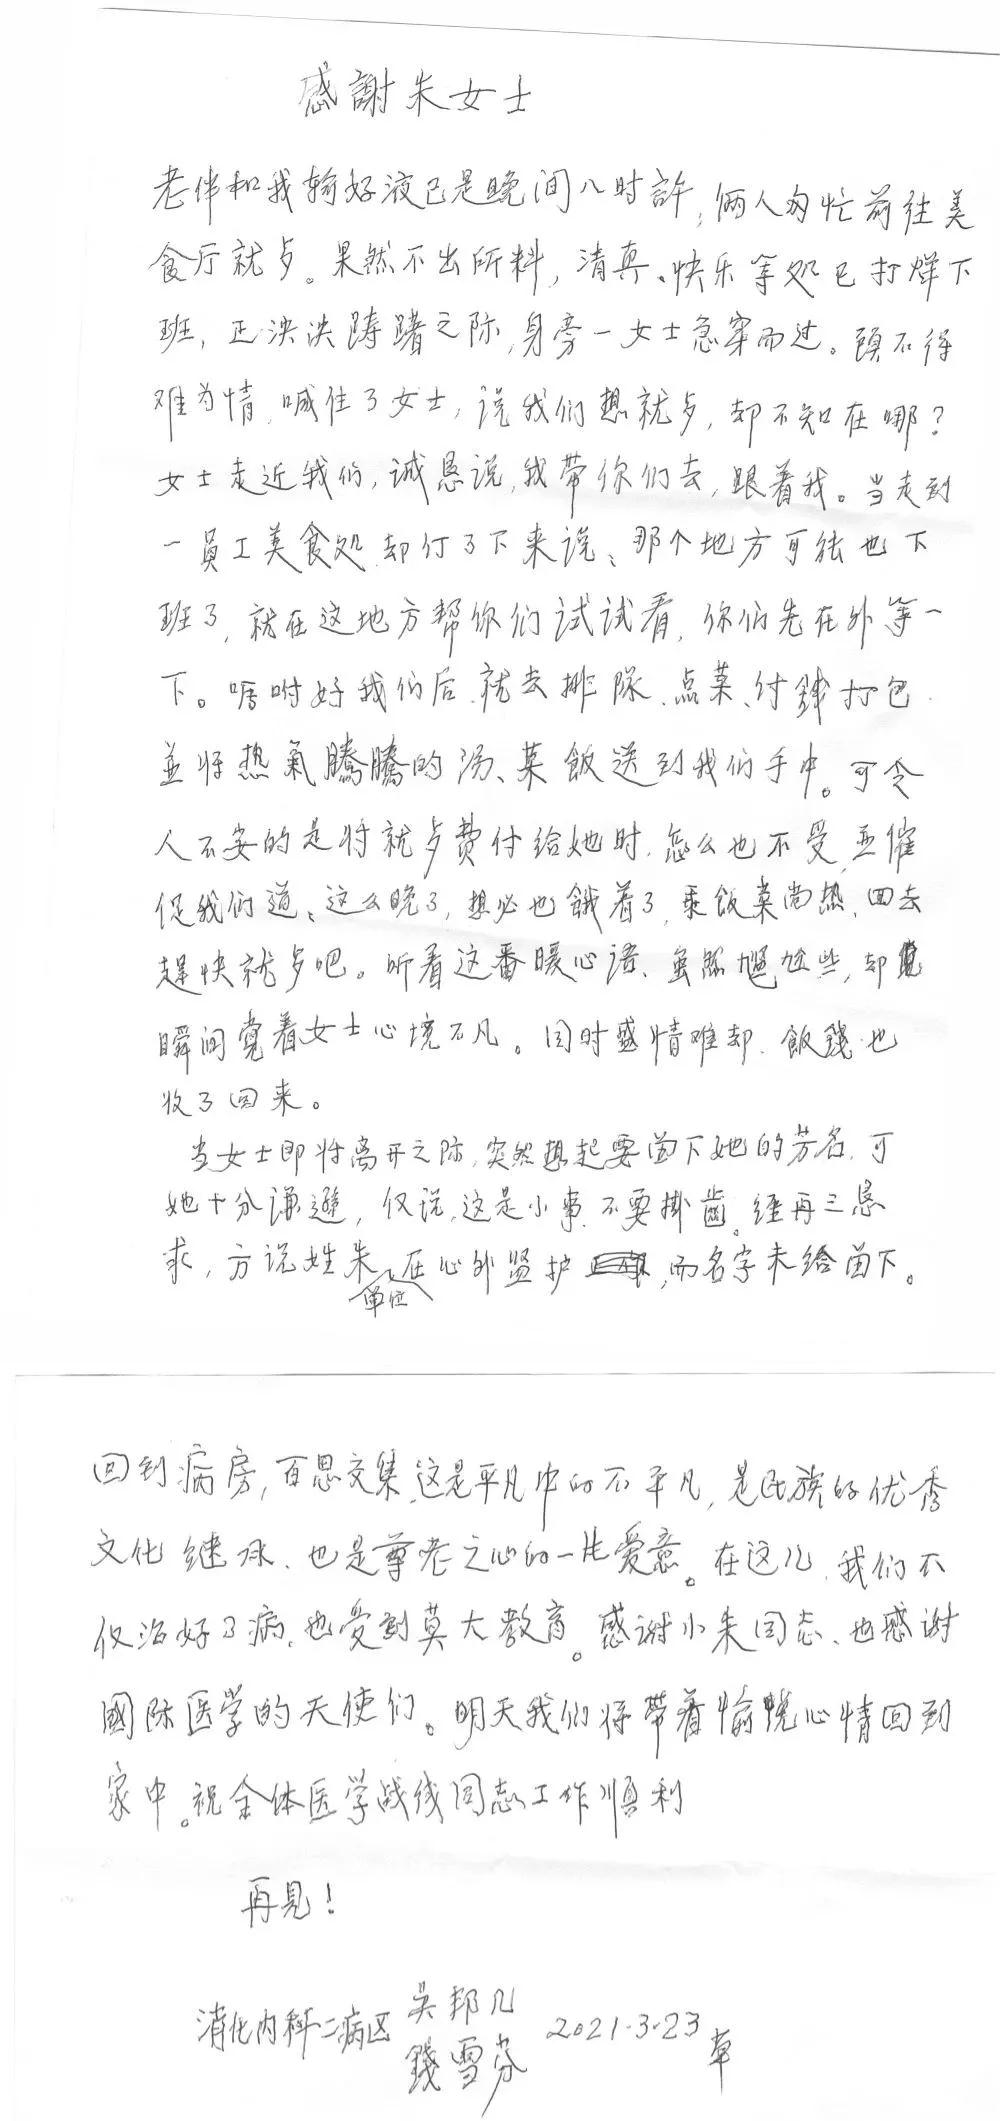 感謝朱女士
老伴和我输好液已是晚间八时許，俩人匆忙前往美
食厅就歺。果然不出所料，清真、快乐等处已打烊下
班，正泱泱踌躇之际，身旁一女士急穿而过。顾不得
难为情，喊住了女士，说我们想就歺，却不知在哪？
女士走近我们，诚恳说，我带你们去，跟着我。当走到
一員工美食处，却仃了下来说、那个地方可能也下
班了，就在这地方帮你们试试看，你们先在外等一
下。嘱咐好我们后，就去排隊、点菜、付錢打包
並将热氣騰騰的汤、菜飯送到我们手中。可令
人不安的是将就歺费付给她时，怎么也不受，並催
促我们道、这么晚了，想必也餓着了，乘飯菜尚热，回去
趕快就歺吧。听着这番暖心语、虽然尴尬些，却
瞬间覺着女士心境不凡。同时盛情难却，飯錢也
收了回来。
当女士即将离开之际，突然想起要留下她的芳名，可
她十分谦遜，仅说，这是小事，不要掛齒。经再三恳
求，方说姓朱，单位在心外监护，而名字未给留下。
回到病房，百思交集，这是平凡中的不平凡，是民族的优秀
文化继承、也是尊老之心的一片爱意。在这儿，我们不
仅治好了病，也受到莫大教育。感谢小朱同志、也感谢
國际医学的天使们。明天我们将带着愉悦心情回到
家中。祝全体医学战线同志工作順利
再見！
消化内科二病区 吴邦几 2021.3.23 草
錢雪芬